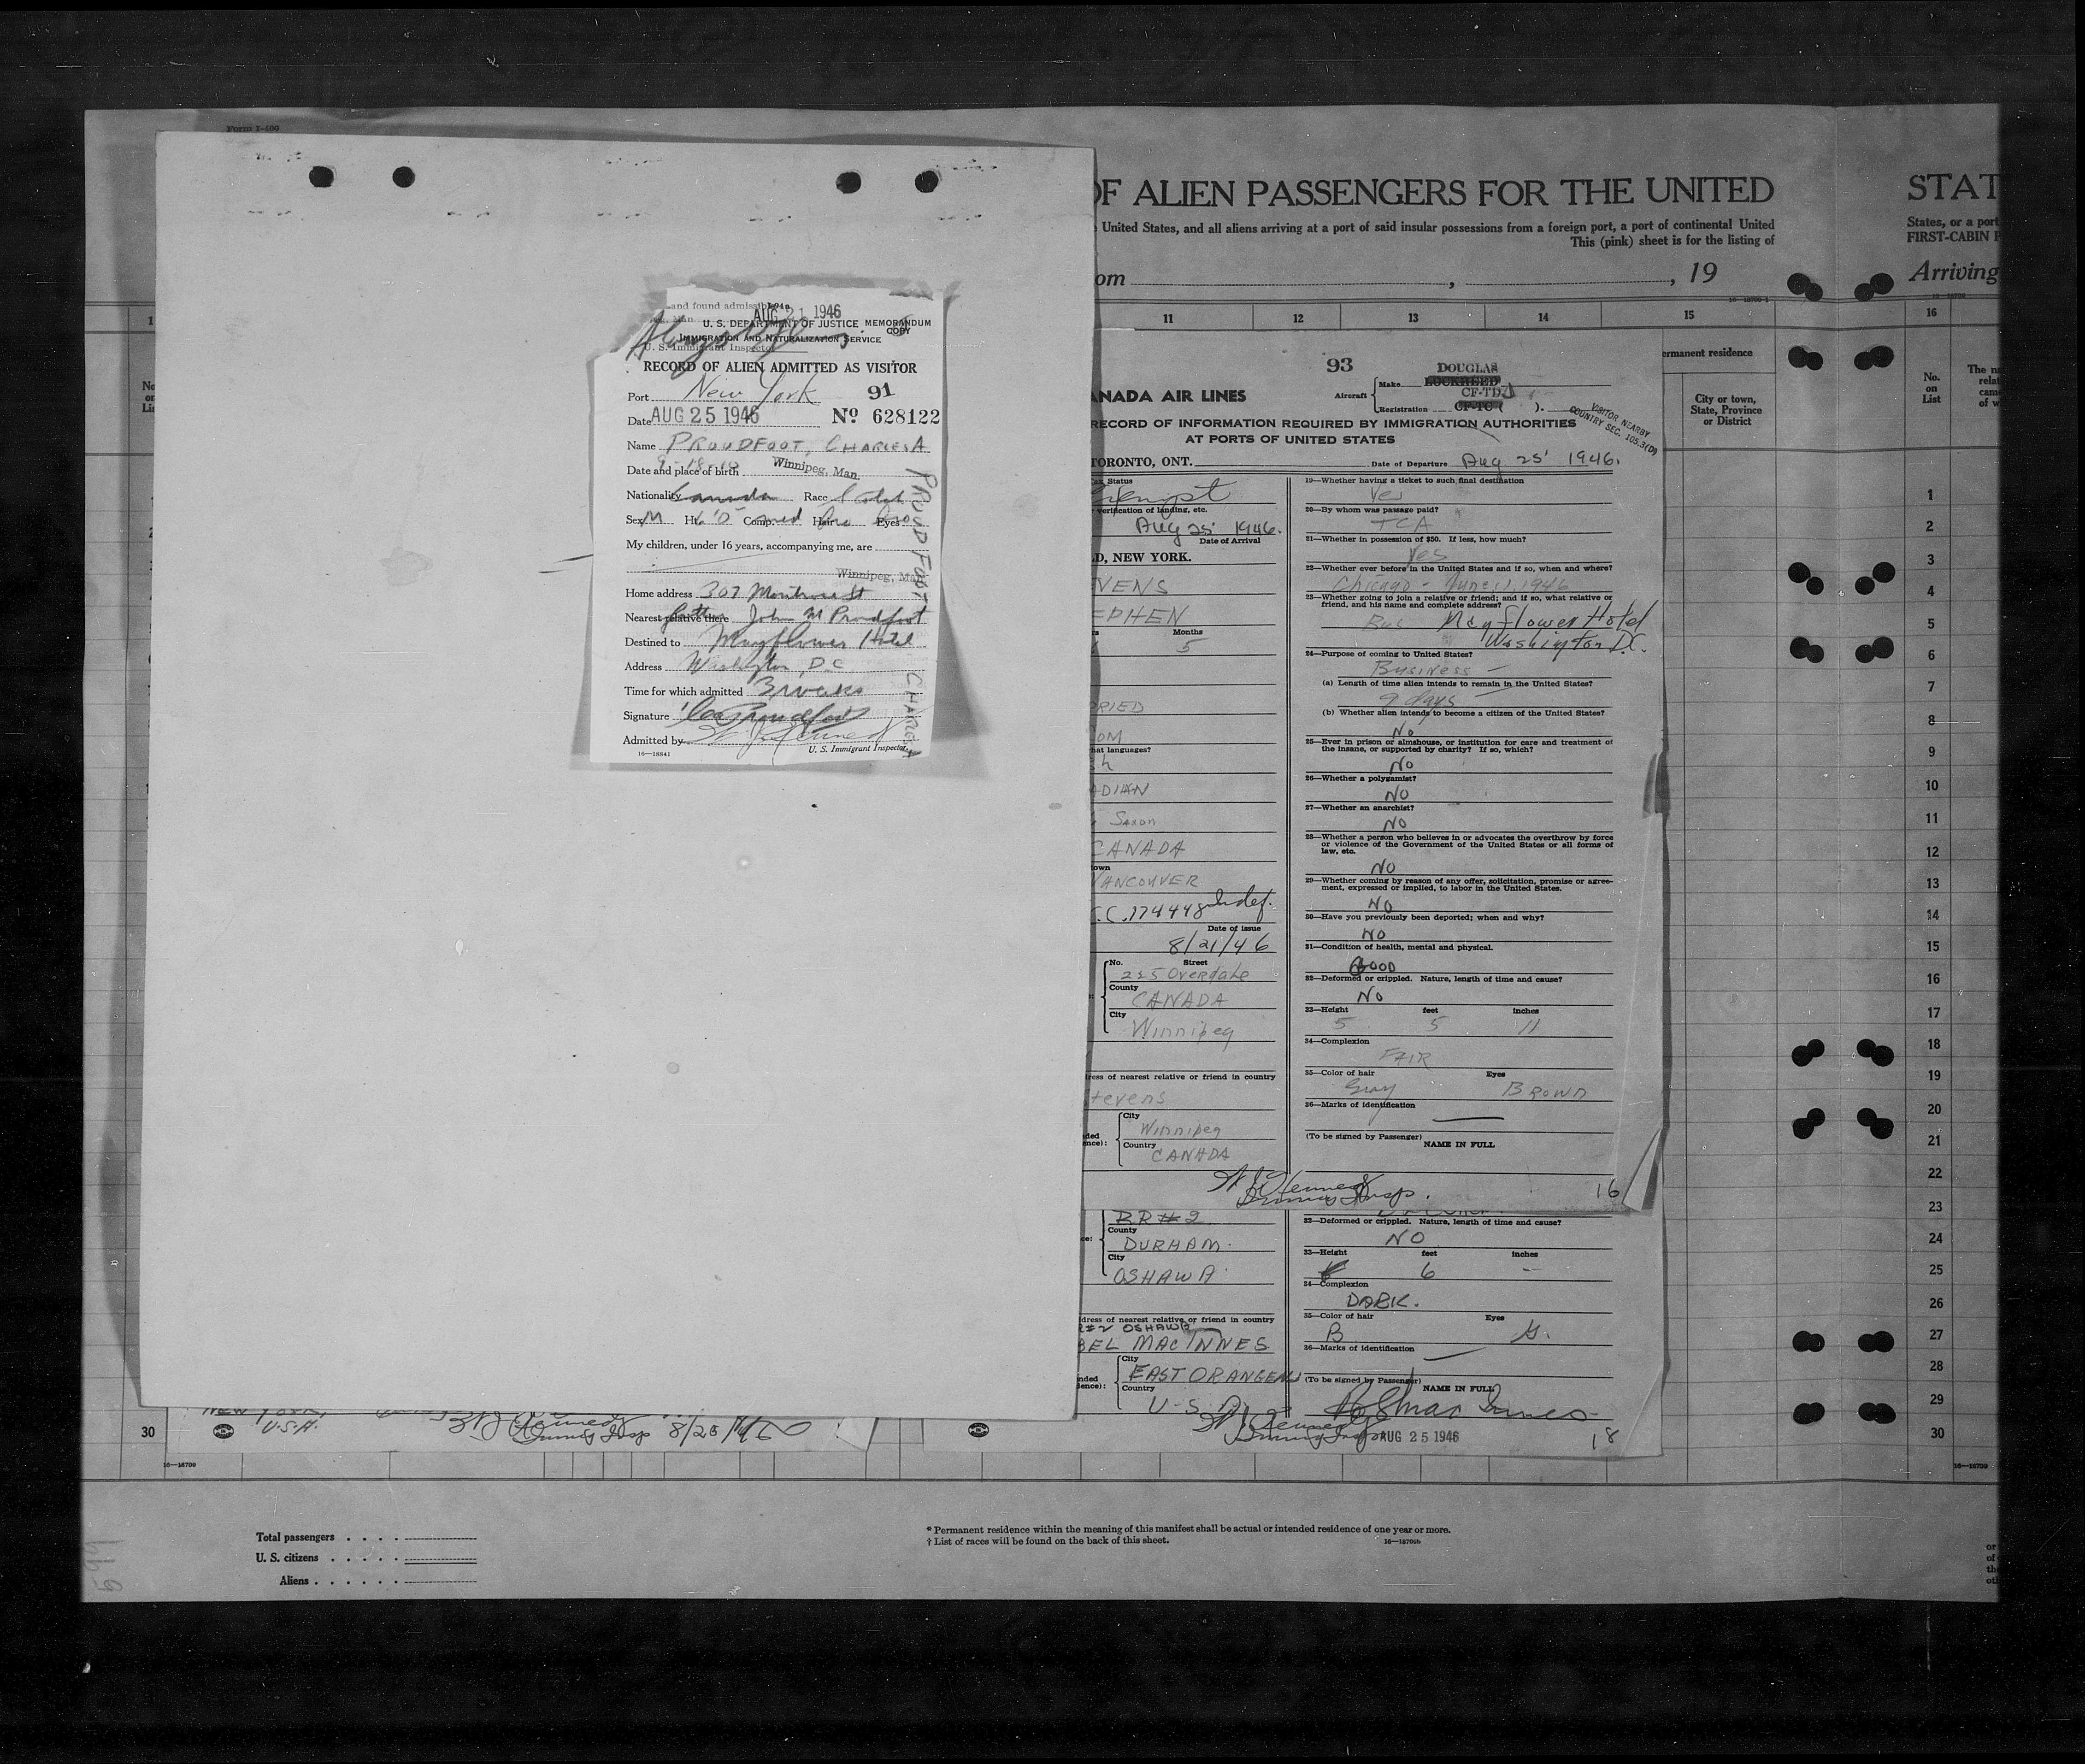 Form I-400
OF ALIEN PASSENGERS FOR THE UNITED
STAT
United States, and all aliens arriving at a port of said insular possessions from a foreign port, a port of continental United
States, or a port
This (pink) sheet is for the listing of
FIRST-CABIN P
om , , 19
Arriving
11 12 13 14 15 16
and found admissible
AUG 21 1946
U. S. DEPARTMENT OF JUSTICE MEMORANDUM
COPY
IMMIGRATION AND NATURALIZATION SERVICE
U. S. Immigrant Inspector
RECORD OF ALIEN ADMITTED AS VISITOR
Port New York 91
Date AUG 25 1946 No 628122
Name PROUDFOOT, CHARLES A
Date and place of birth Winnipeg, Man.
Nationality Canada Race Scotch
Sex M Ht. 6'0" Comp. med Hair Bro Eyes Bro
My children, under 16 years, accompanying me, are
Winnipeg, Man.
Home address 307 Montrose St
Nearest relative there father John M Proudfoot
Destined to Mayflower Hotel
Address Washington, D.C
Time for which admitted 3 weeks
Signature
Admitted by
16—18841 U. S. Immigrant Inspector.
PROUDFOOT CHARLES A
93
DOUGLAS
Make LOCKHEED
CF-TDJ
Aircraft
Registration CF-TC ( ).
VISITOR NEARBY
COUNTRY SEC. 105.3(D)
ANADA AIR LINES
RECORD OF INFORMATION REQUIRED BY IMMIGRATION AUTHORITIES
AT PORTS OF UNITED STATES
TORONTO, ONT. Date of Departure Aug 25 1946.
Tax Status
Exempt
verification of landing, etc.
Aug 25 1946.
Date of Arrival
D, NEW YORK.
VENS
EPHEN
Months
5
RIED
OM
hat languages?
sh
ADIAN
Saxon
CANADA
town
VANCOUVER
C.C.174448 Indef.
Date of issue
8/21/46
No. Street
225 Overdale
County
CANADA
City
Winnipeg
ress of nearest relative or friend in country
tevens
City
Winnipeg
Country
CANADA
19—Whether having a ticket to such final destination
Yes
20—By whom was passage paid?
TCA
21—Whether in possession of $50. If less, how much?
Yes
22—Whether ever before in the United States and if so, when and where?
Chicago - June, 1946
23—Whether going to join a relative or friend; and if so, what relative or
friend, and his name and complete address?
Bus Mayflower Hotel
Washington D.C.
24—Purpose of coming to United States?
Business
(a) Length of time alien intends to remain in the United States?
9 days
(b) Whether alien intends to become a citizen of the United States?
No
25—Ever in prison or almshouse, or institution for care and treatment of
the insane, or supported by charity? If so, which?
No
26—Whether a polygamist?
NO
27—Whether an anarchist?
NO
28—Whether a person who believes in or advocates the overthrow by force
or violence of the Government of the United States or all forms of
law, etc.
NO
29—Whether coming by reason of any offer, solicitation, promise or agree-
ment, expressed or implied, to labor in the United States.
NO
30—Have you previously been deported; when and why?
NO
31—Condition of health, mental and physical.
GOOD
32—Deformed or crippled. Nature, length of time and cause?
No
33—Height feet inches
5 5 11
34—Complexion
FAIR
35—Color of hair Eyes
Gray BROWN
36—Marks of identification
(To be signed by Passenger)
NAME IN FULL
16
RR #2
County
DURHAM.
City
OSHAWA
dress of nearest relative or friend in country
R#2 OSHAWA
BEL MACINNES
City
EAST ORANGE NJ
Country
U-S-A
32—Deformed or crippled. Nature, length of time and cause?
NO
33—Height feet inches
6 —
34—Complexion
DARK.
35—Color of hair Eyes
B
36—Marks of identification
(To be signed by Passenger)
NAME IN FULL
AUG 25 1946
18
ermanent residence
City or town,
State, Province
or District
No.
on
List
1
2
3
4
5
6
7
8
9
10
11
12
13
14
15
16
17
18
19
20
21
22
23
24
25
26
27
28
29
30
NEW YORK,
U.S.A.
30
16—18709
16—18709
Total passengers
U. S. citizens
Aliens
* Permanent residence within the meaning of this manifest shall be actual or intended residence of one year or more.
† List of races will be found on the back of this sheet.